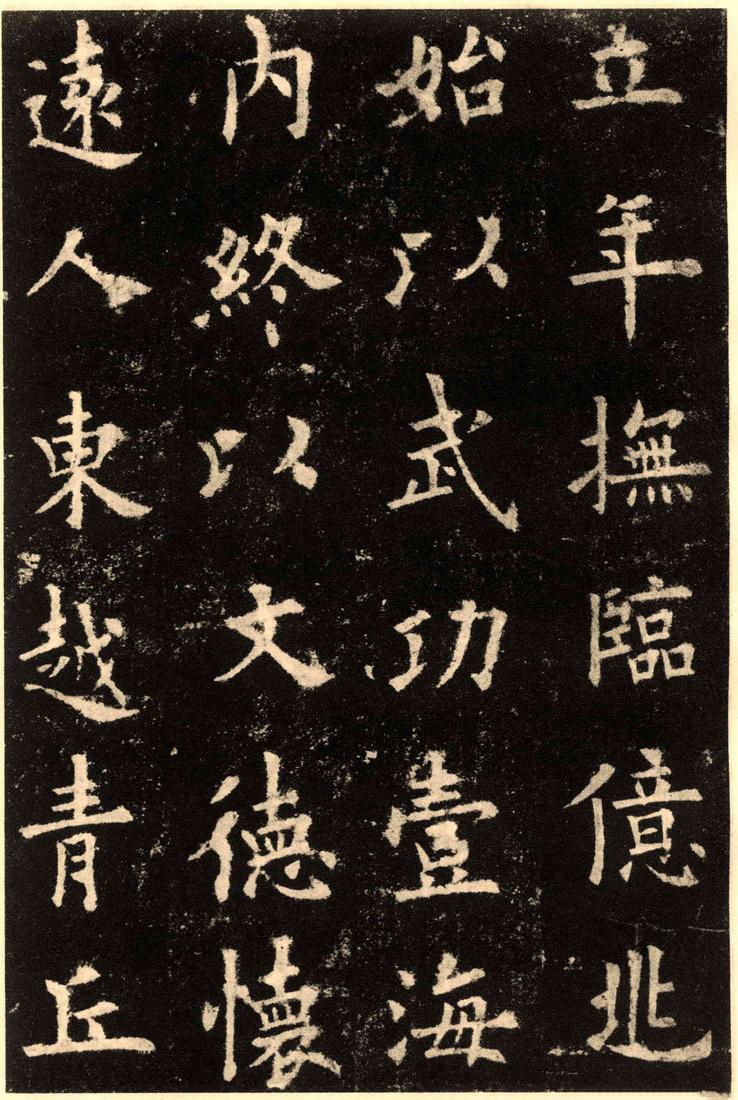 立年撫臨億兆
始以武功壹海
內終以文德懷
遠人東越青丘